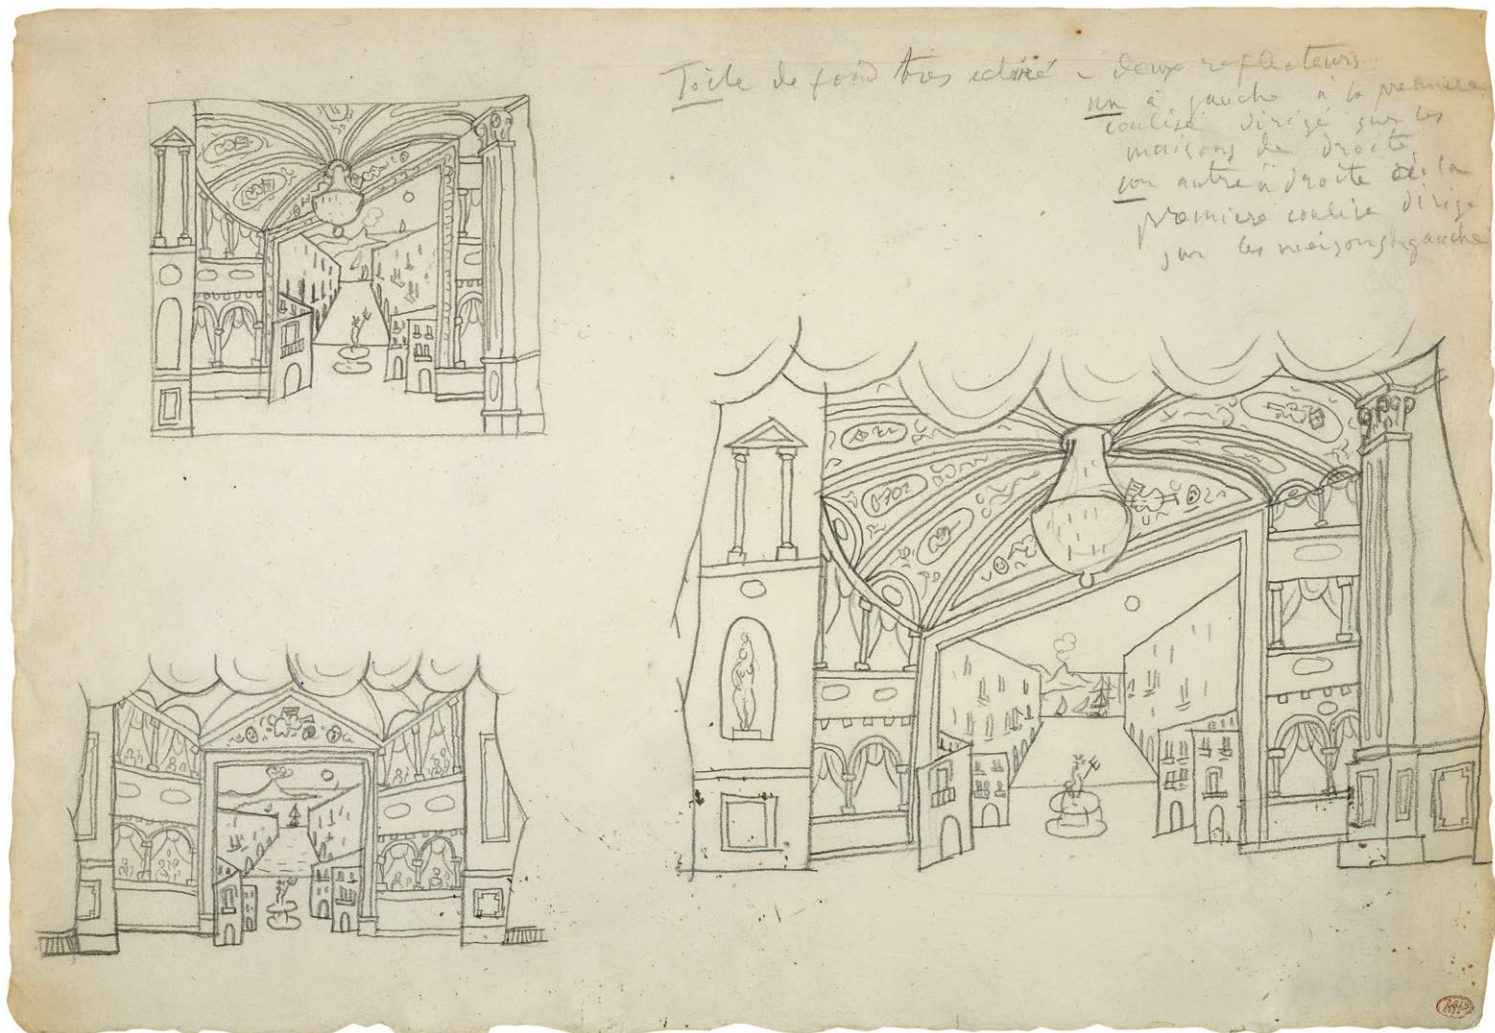 Toile de fond tres eclairé - deux reflecteurs
un à gauche à la premiere
coulise dirigé sur les
maisons de droite
un autre à droite à la
premiere coulise dirigé
sur les maisons de gauche